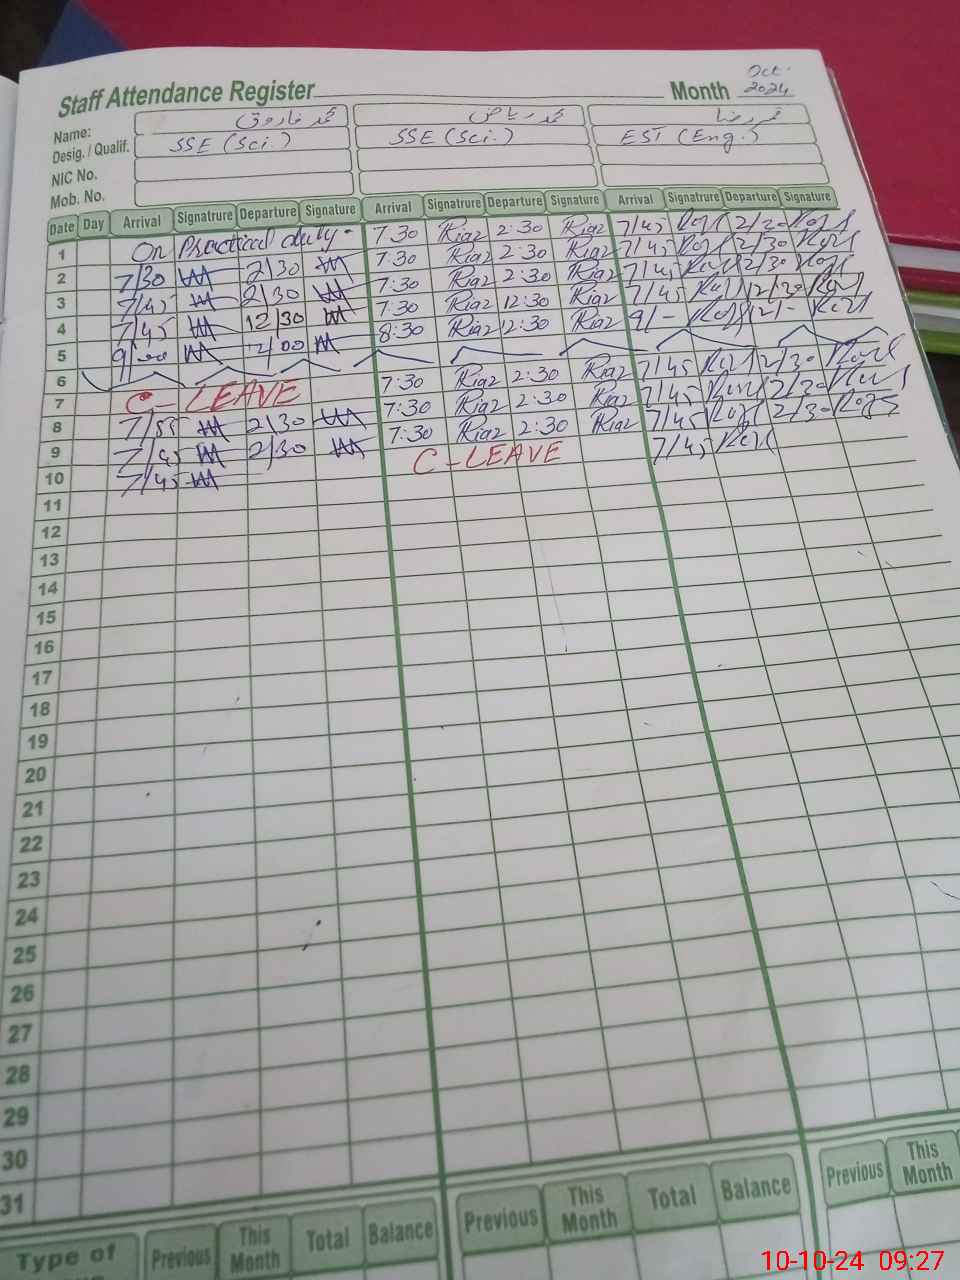 Oct.
Staff Attendance Register Month 2024
Name: محمد فاروق محمد ریاض قمر رضا
Desig. / Qualif. SSE (Sci.) SSE (Sci.) EST (Eng.)
NIC No.
Mob. No.
Date Day Arrival Signatrure Departure Signature Arrival Signatrure Departure Signature Arrival Signatrure Departure Signature
1 On Practical duty. 7:30 Riaz 2:30 Riaz 7/45 2/30
2 7/30 2/30 7:30 Riaz 2:30 Riaz 7/45 2/30
3 7/45 2/30 7:30 Riaz 2:30 Riaz 7/45 2/30
4 7/45 12/30 7:30 Riaz 12:30 Riaz 7/45 12/30
5 9/00 2/00 8:30 Riaz 2:30 Riaz 9/- 2/-
6
7 C-LEAVE 7:30 Riaz 2:30 Riaz 7/45 2/30
8 7/55 2/30 7:30 Riaz 2:30 Riaz 7/45 2/30
9 7/45 2/30 7:30 Riaz 2:30 Riaz 7/45 2/30
10 7/45 C-LEAVE 7/45
11
12
13
14
15
16
17
18
19
20
21
22
23
24
25
26
27
28
29
30
31
Type of Previous This Month Total Balance Previous This Month Total Balance Previous This Month
10-10-24 09:27